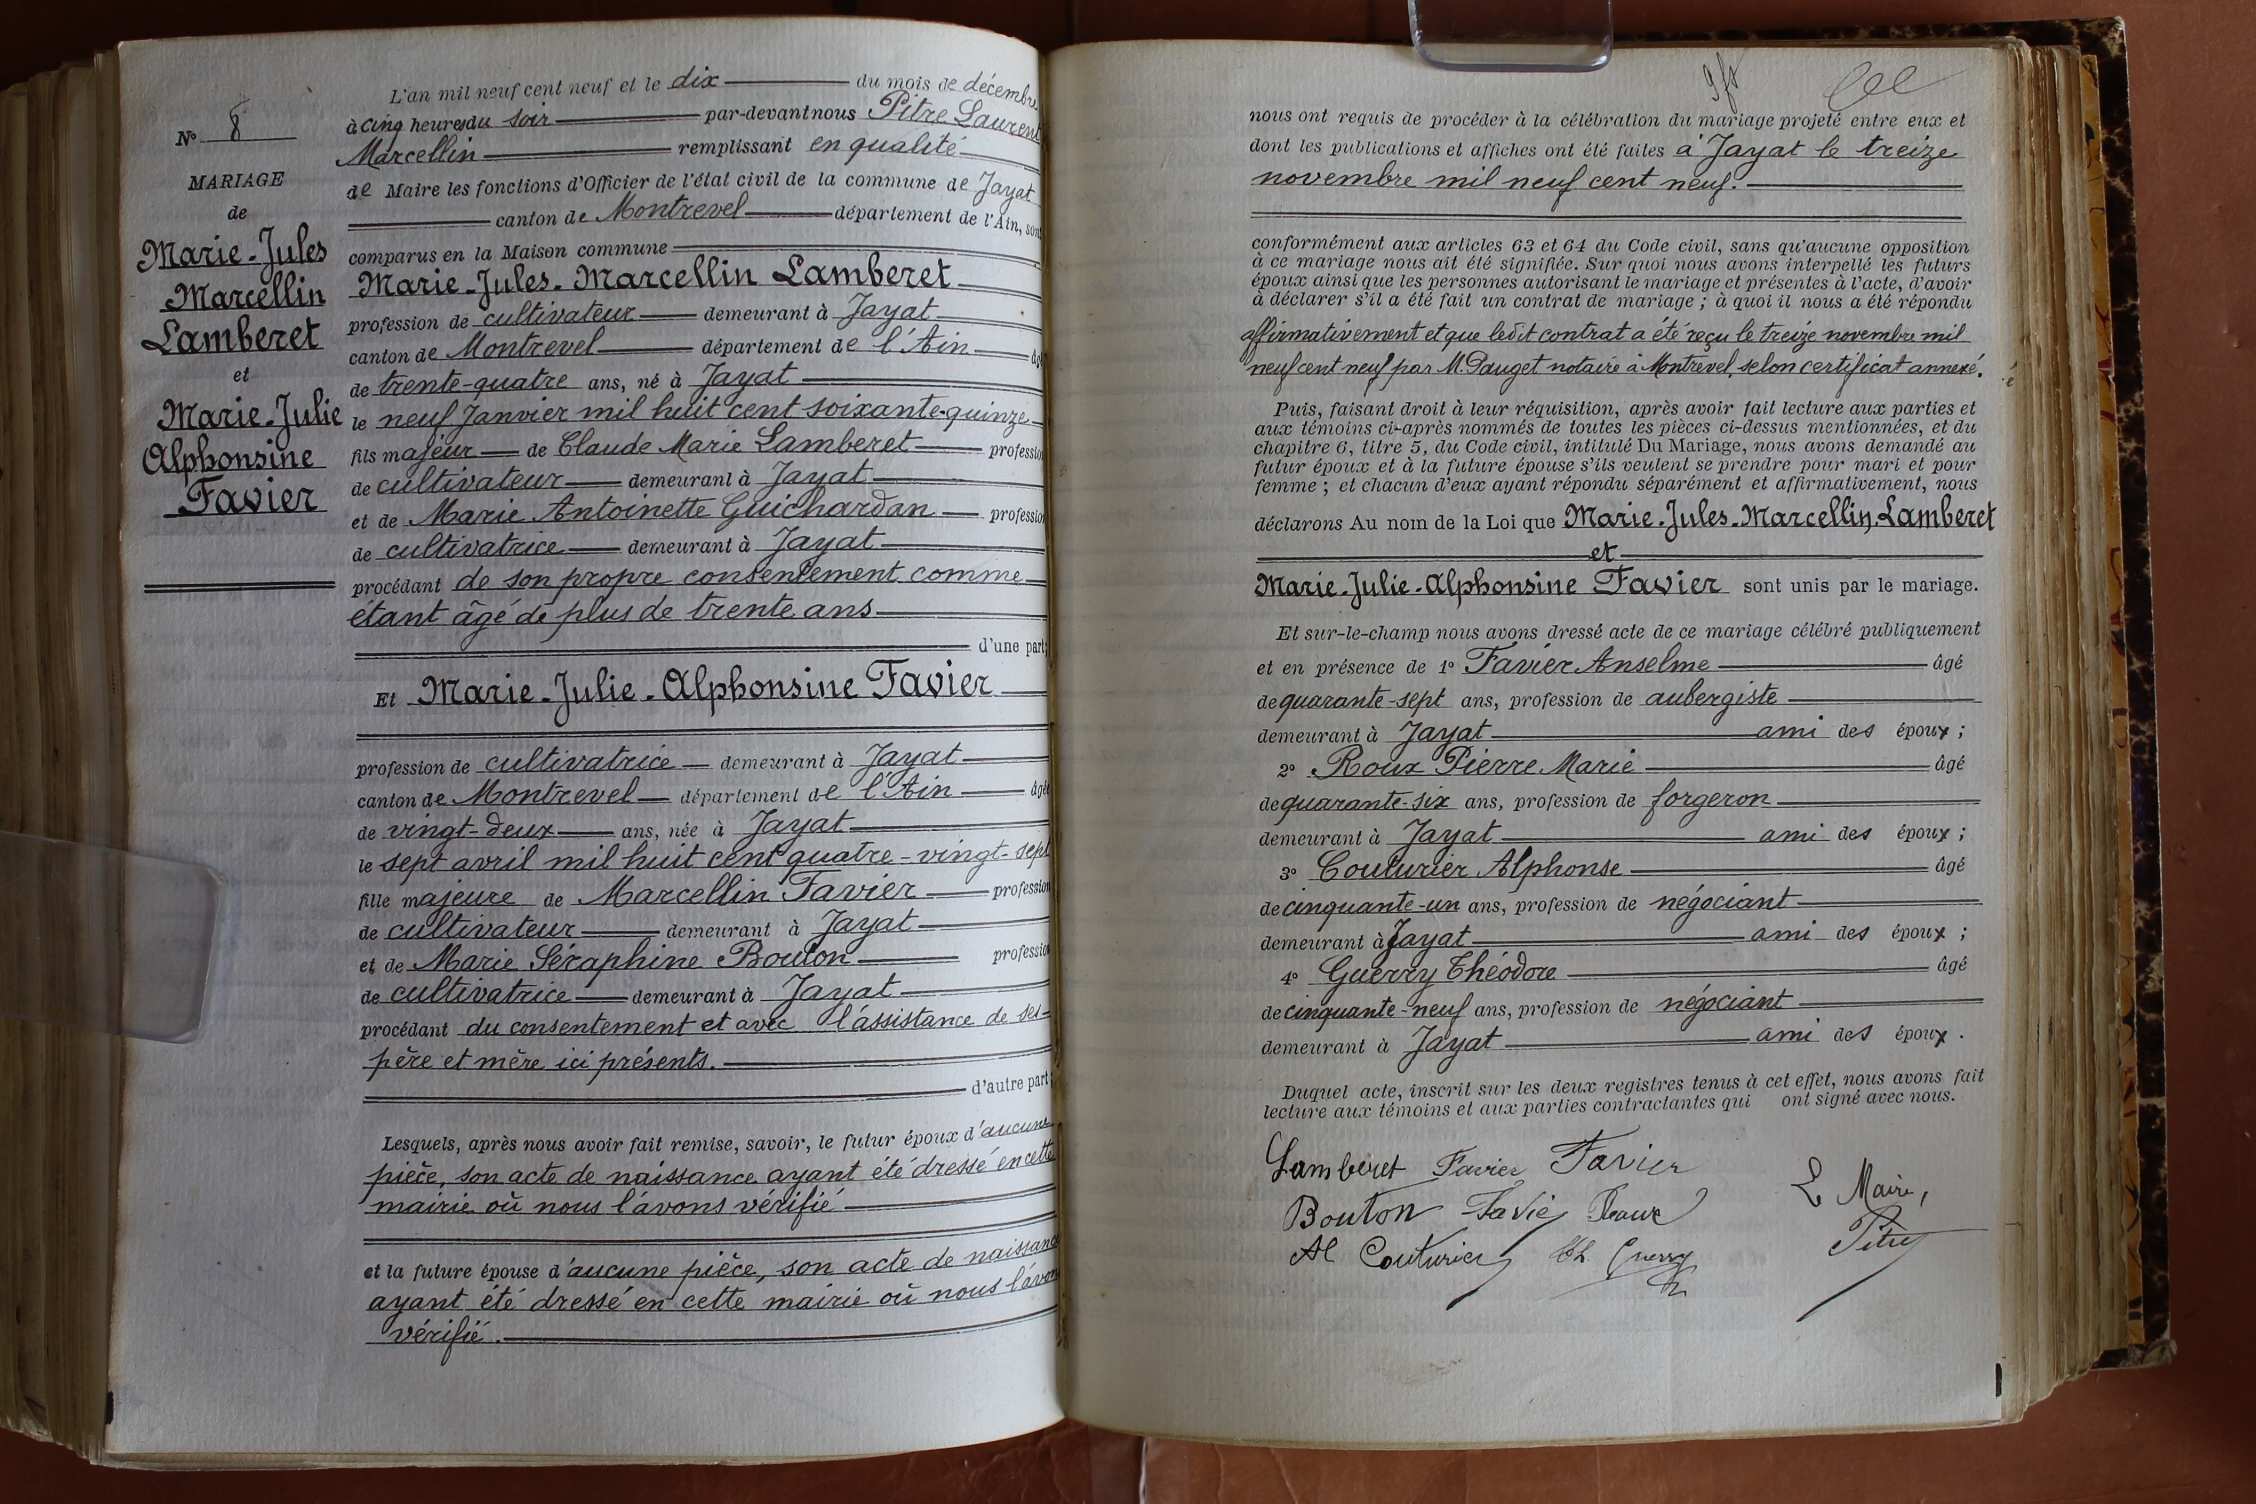 N° 8
MARIAGE
de
Marie-Jules
Marcellin
Lamberet
et
Marie-Julie
Alphonsine
Favier
L'an mil neuf cent neuf et le dix du mois de décembre
à cinq heures du soir par-devant nous Pitre Laurent
Marcellin remplissant en qualité
de Maire les fonctions d'Officier de l'état civil de la commune de Jayat
canton de Montrevel département de l'Ain, sont
comparus en la Maison commune
Marie-Jules-Marcellin Lamberet
profession de cultivateur demeurant à Jayat
canton de Montrevel département de l'Ain âgé
de trente-quatre ans, né à Jayat
le neuf Janvier mil huit cent soixante-quinze
fils majeur de Claude Marie Lamberet profession
de cultivateur demeurant à Jayat
et de Marie Antoinette Guichardan profession
de cultivatrice demeurant à Jayat
procédant de son propre consentement comme
étant âgé de plus de trente ans
d'une part;
Et Marie-Julie-Alphonsine Favier
profession de cultivatrice demeurant à Jayat
canton de Montrevel département de l'Ain âgée
de vingt-deux ans, née à Jayat
le sept avril mil huit cent quatre-vingt-sept
fille majeure de Marcellin Favier profession
de cultivateur demeurant à Jayat
et de Marie Séraphine Bouton profession
de cultivatrice demeurant à Jayat
procédant du consentement et avec l'assistance de ses
père et mère ici présents.
d'autre part;
Lesquels, après nous avoir fait remise, savoir, le futur époux d'aucune
pièce, son acte de naissance ayant été dressé en cette
mairie où nous l'avons vérifié
et la future épouse d'aucune pièce, son acte de naissance
ayant été dressé en cette mairie où nous l'avons
vérifié.
nous ont requis de procéder à la célébration du mariage projeté entre eux et
dont les publications et affiches ont été faites à Jayat le treize
novembre mil neuf cent neuf.
conformément aux articles 63 et 64 du Code civil, sans qu'aucune opposition
à ce mariage nous ait été signifiée. Sur quoi nous avons interpellé les futurs
époux ainsi que les personnes autorisant le mariage et présentes à l'acte, d'avoir
à déclarer s'il a été fait un contrat de mariage ; à quoi il nous a été répondu
affirmativement et que ledit contrat a été reçu le treize novembre mil
neuf cent neuf par M. Pauget notaire à Montrevel, selon certificat annexé.
Puis, faisant droit à leur réquisition, après avoir fait lecture aux parties et
aux témoins ci-après nommés de toutes les pièces ci-dessus mentionnées, et du
chapitre 6, titre 5, du Code civil, intitulé Du Mariage, nous avons demandé au
futur époux et à la future épouse s'ils veulent se prendre pour mari et pour
femme ; et chacun d'eux ayant répondu séparément et affirmativement, nous
déclarons Au nom de la Loi que Marie-Jules-Marcellin-Lamberet
et
Marie-Julie-Alphonsine Favier sont unis par le mariage.
Et sur-le-champ nous avons dressé acte de ce mariage célébré publiquement
et en présence de 1° Favier Anselme âgé
de quarante-sept ans, profession de aubergiste
demeurant à Jayat ami des époux ;
2° Roux Pierre Marie âgé
de quarante-six ans, profession de forgeron
demeurant à Jayat ami des époux ;
3° Couturier Alphonse âgé
de cinquante-un ans, profession de négociant
demeurant à Jayat ami des époux ;
4° Guerry Théodore âgé
de cinquante-neuf ans, profession de négociant
demeurant à Jayat ami des époux.
Duquel acte, inscrit sur les deux registres tenus à cet effet, nous avons fait
lecture aux témoins et aux parties contractantes qui ont signé avec nous.
Lamberet Favier Favier
Bouton Favier Roux
Al Couturier Th. Guerry
Le Maire,
Pitre